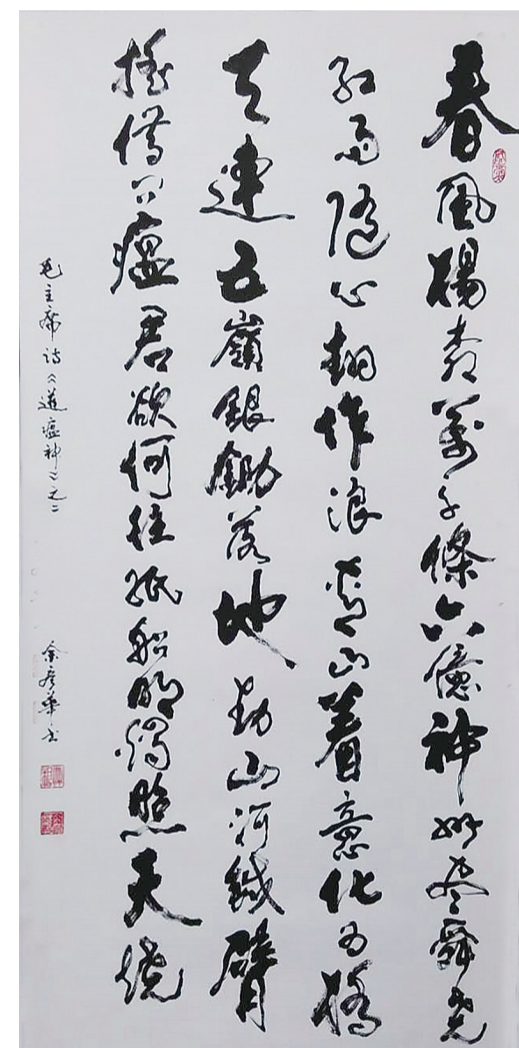 春風楊柳萬千條六億神州盡舜堯
紅雨隨心翻作浪青山着意化為橋
天連五嶺銀鋤落地動山河鐵臂
搖借問瘟君欲何往紙船明燭照天燒
毛主席诗《送瘟神》之二
余彦華书